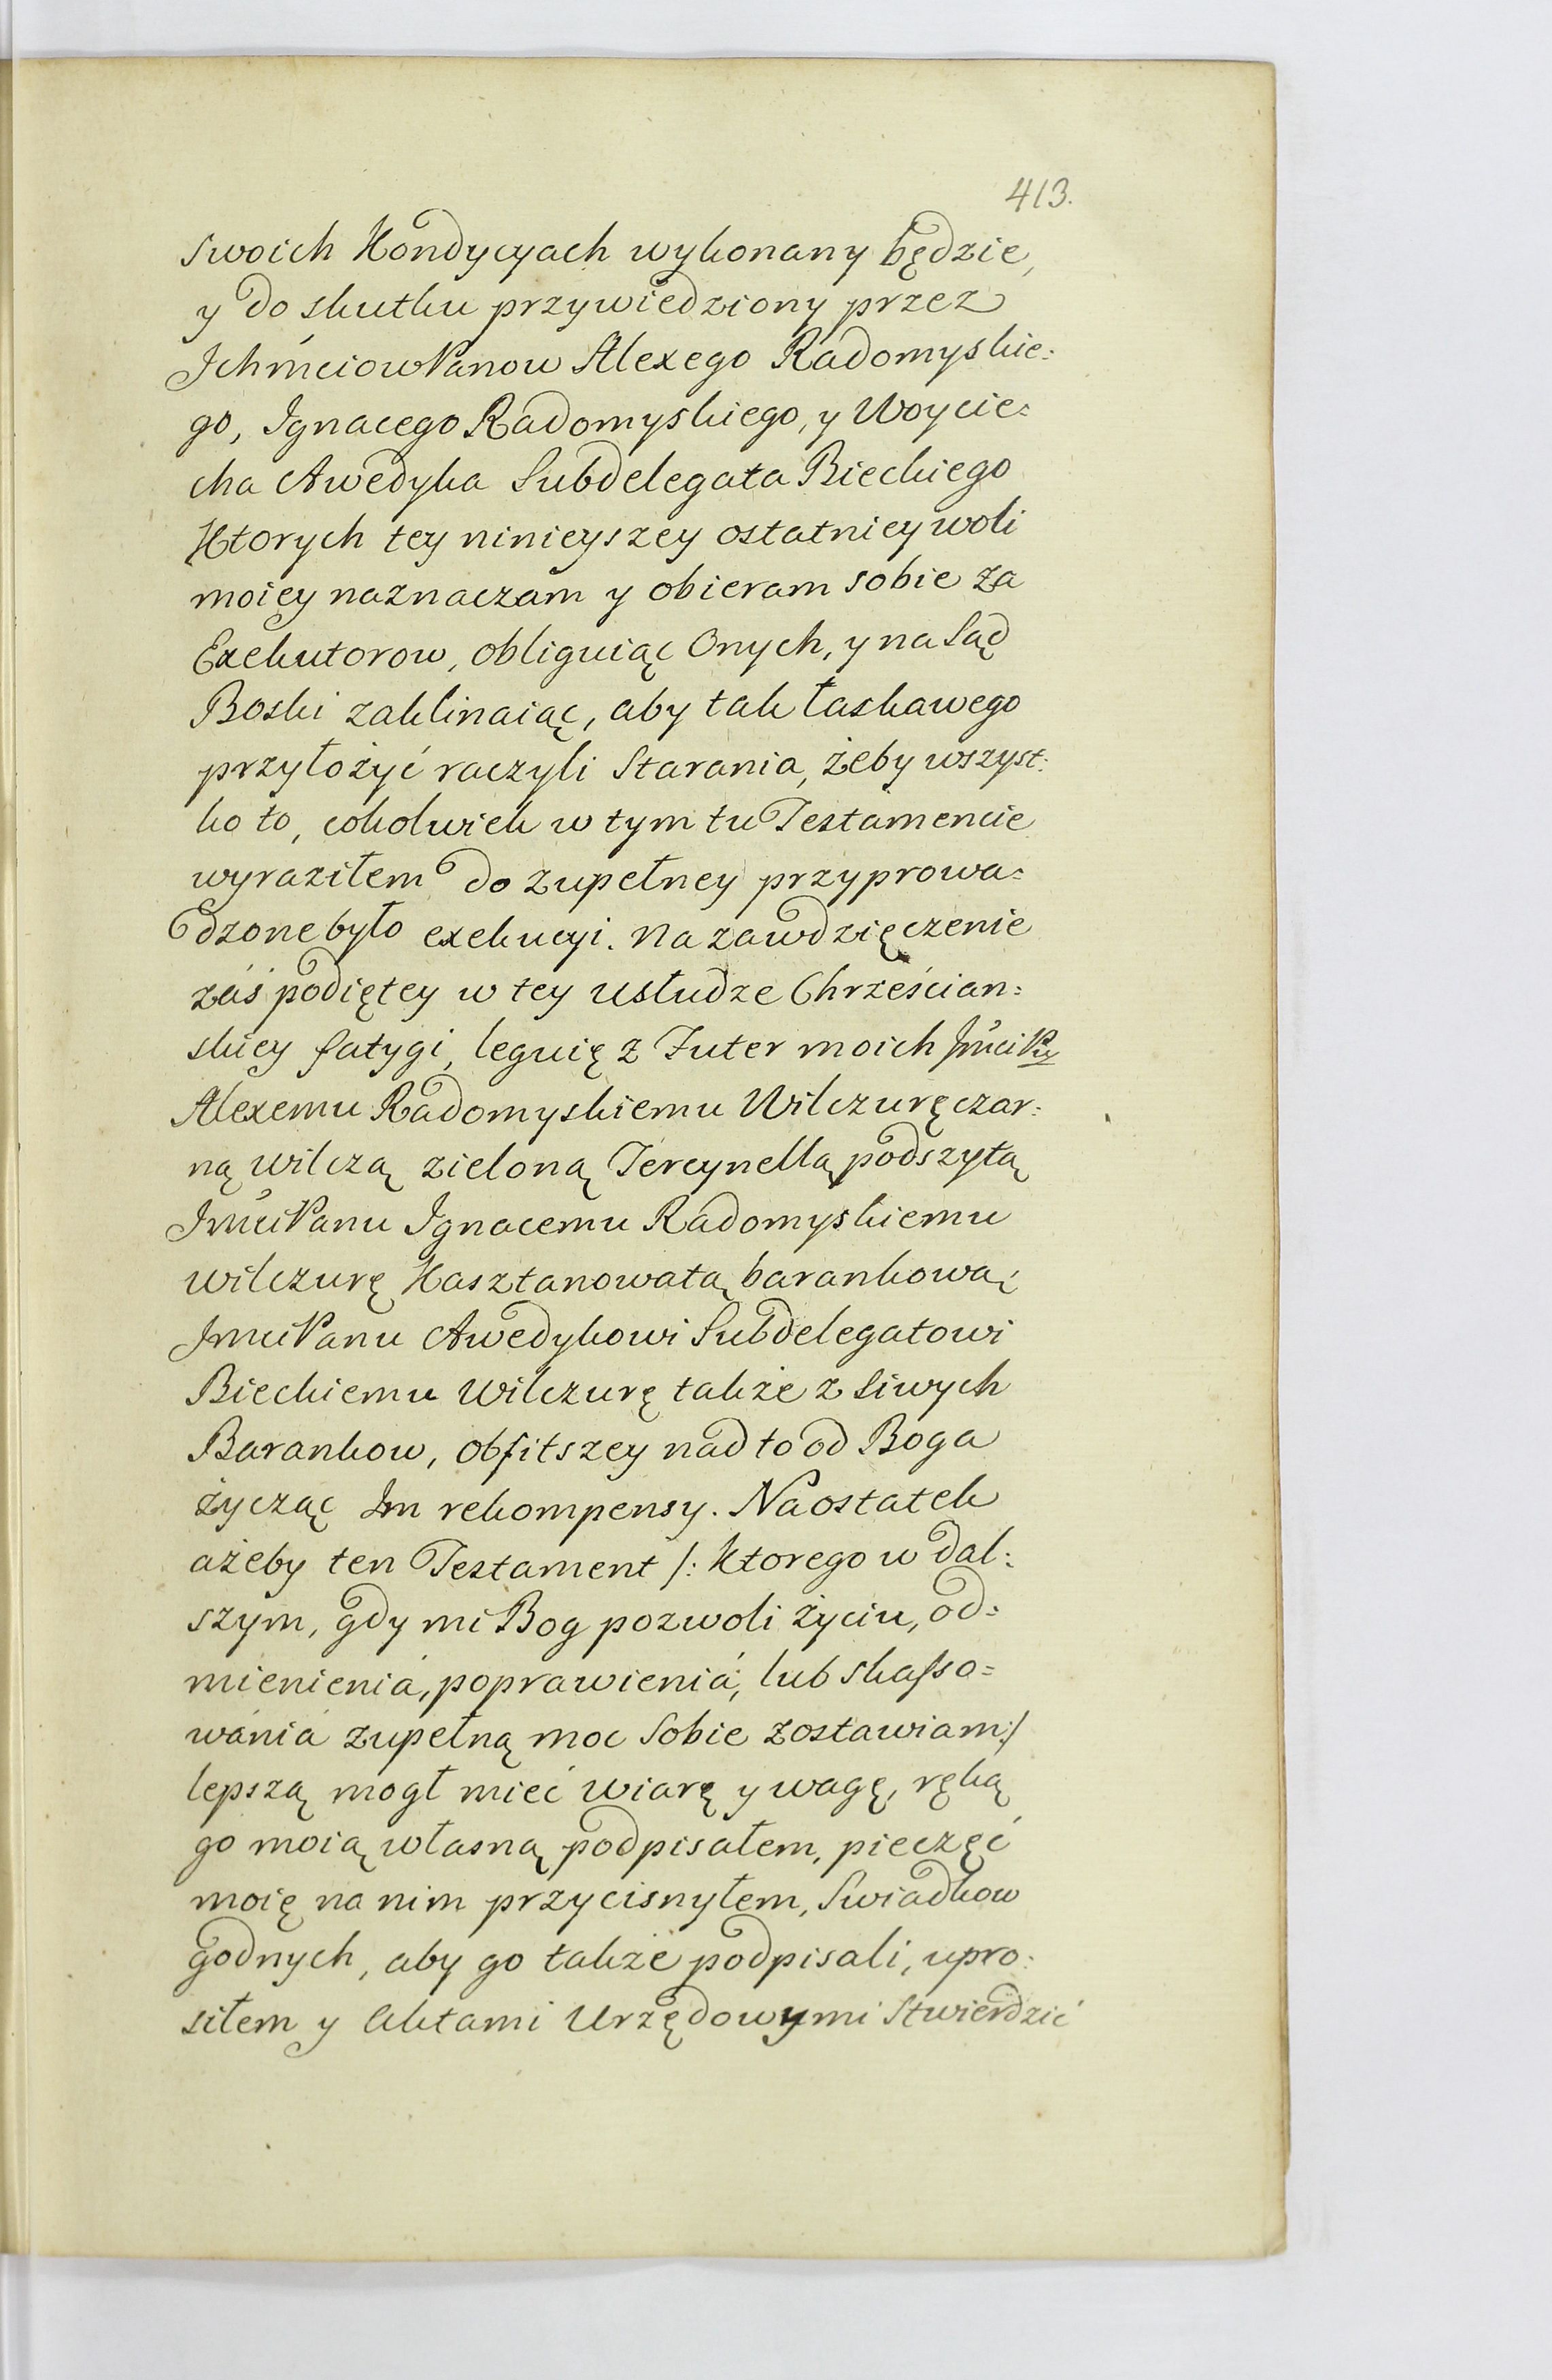 413.
swoich Kondycyach wykonany będzie,
y do skutku przywiedziony przez
Ichmciow Panow Alexego Radomyskie:
go, Ignacego Radomyskiego, y Woycie:
cha Awedyka Subdelegata Bieckiego
Ktorych tey ninieyszey ostatniey woli
moiey naznaczam y obieram sobie za
Exekutorow, obliguiąc Onych, y na Sąd
Boski zaklinaiąc, aby tak łaskawego
przyłożyć raczyli Starania, żeby wszyst:
ko to, cokolwiek w tym tu Testamencie
wyraziłem do zupełney przyprowa:
dzone było exekucyi. Na zawdzięczenie
záś podiętey w tey usłudze Chrześcian:
skiey fatygi, leguię z Futer moich Jmci Pu
Alexemu Radomyskiemu Wilczurę czar:
ną wilczą zieloną Tercynellą podszytą
Jmci Panu Ignacemu Radomyskiemu
wilczurę Kasztanowatą barankową;
Jmci Panu Awedykowi Subdelegatowi
Bieckiemu Wilczurę także z Siwych
Barankow, obfitszey nad to od Boga
życząc Im rekompensy. Na ostatek
ażeby ten Testament /: Ktorego w dal:
szym, gdy mi Bog pozwoli życiu, od:
mienieniá, poprawieniá, lub skasso=
wániá zupełną moc Sobie zostawiam:/
lepszą mogł mieć wiarę y wagę, ręką
go moią własną podpisałem, pieczęć
moię na nim przycisnyłem, Swiadkow
godnych, aby go także podpisali, upro:
siłem y Aktami Urzędowymi Stwierdzić